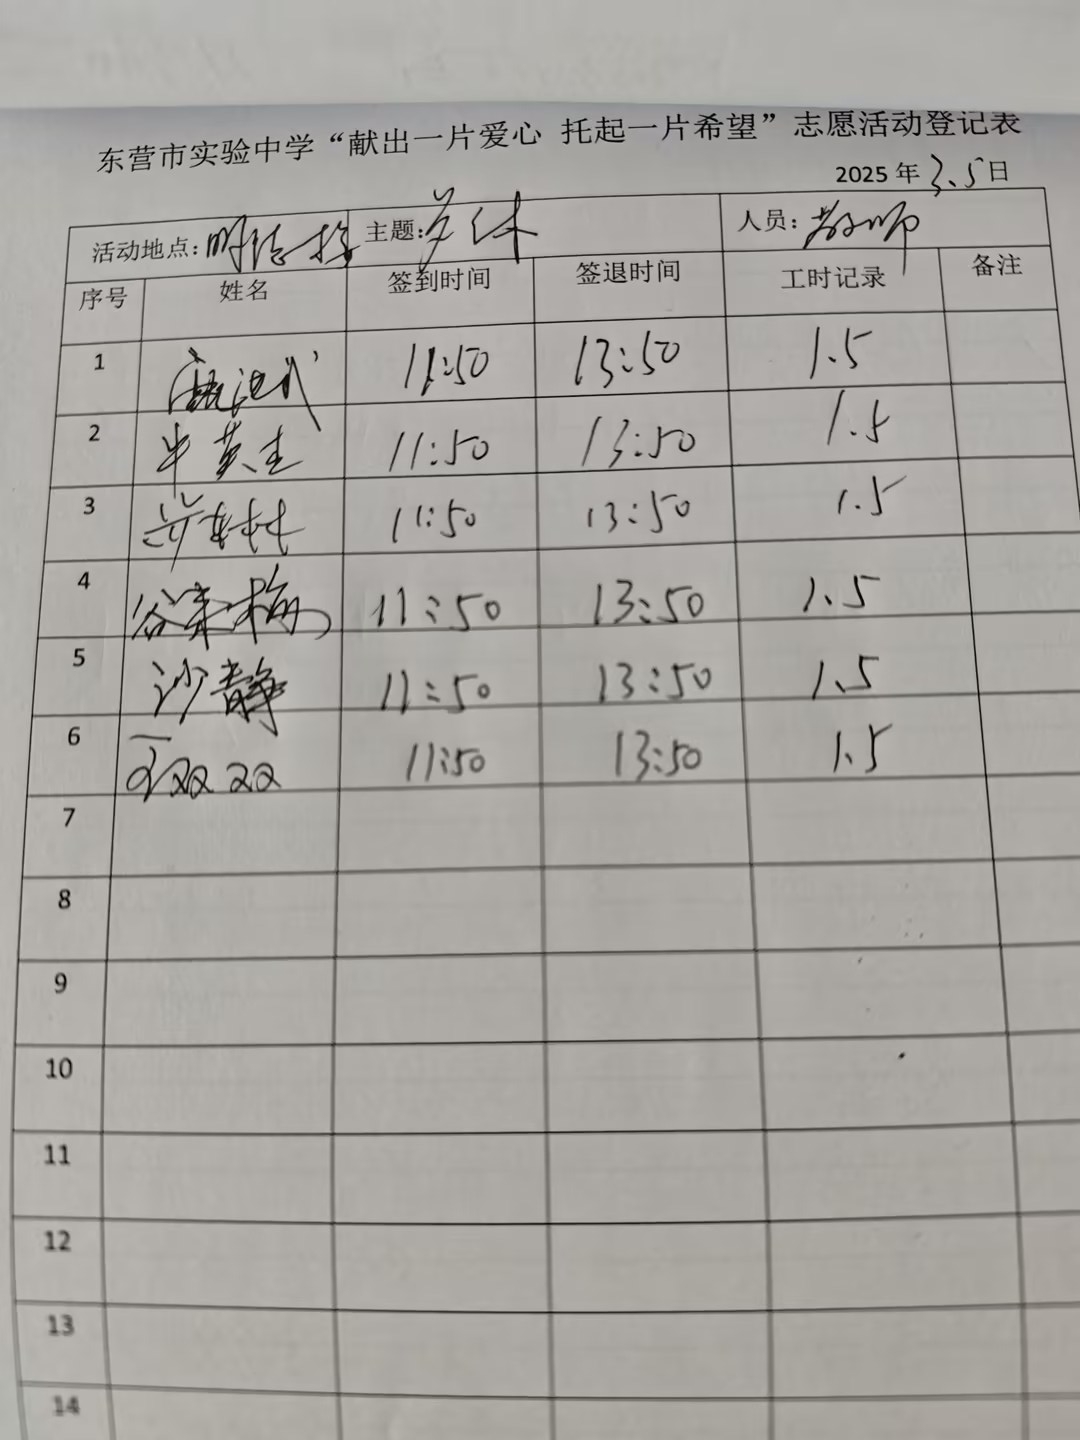 东营市实验中学“献出一片爱心 托起一片希望”志愿活动登记表
2025年3.5日
活动地点：明德楼 主题：午休 人员：教师
序号 姓名 签到时间 签退时间 工时记录 备注
1 11:50 13:50 1.5
2 11:50 13:50 1.5
3 11:50 13:50 1.5
4 谷荣梅 11:50 13:50 1.5
5 沙静 11:50 13:50 1.5
6 王双双 11:50 13:50 1.5
7
8
9
10
11
12
13
14